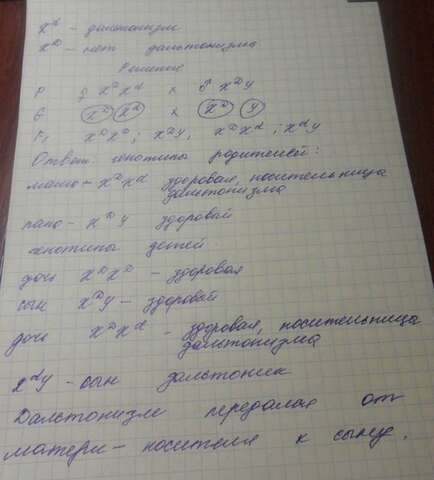 X^d - дальтонизм
X^D - нет дальтонизма
Решение
P ♀ X^D X^d x ♂ X^D Y
G X^D X^d x X^D Y
F₁ X^D X^D; X^D Y, X^D X^d; X^d Y
Ответ: генотипы родителей:
мама - X^D X^d здоровая, носительница
дальтонизма
папа - X^D Y здоровый
генотипы детей
дочь X^D X^D - здоровая
сын X^D Y - здоровый
дочь X^D X^d - здоровая, носительница
дальтонизма
X^d Y - сын дальтоник
Дальтонизм передался от
матери - носителя к сыну.